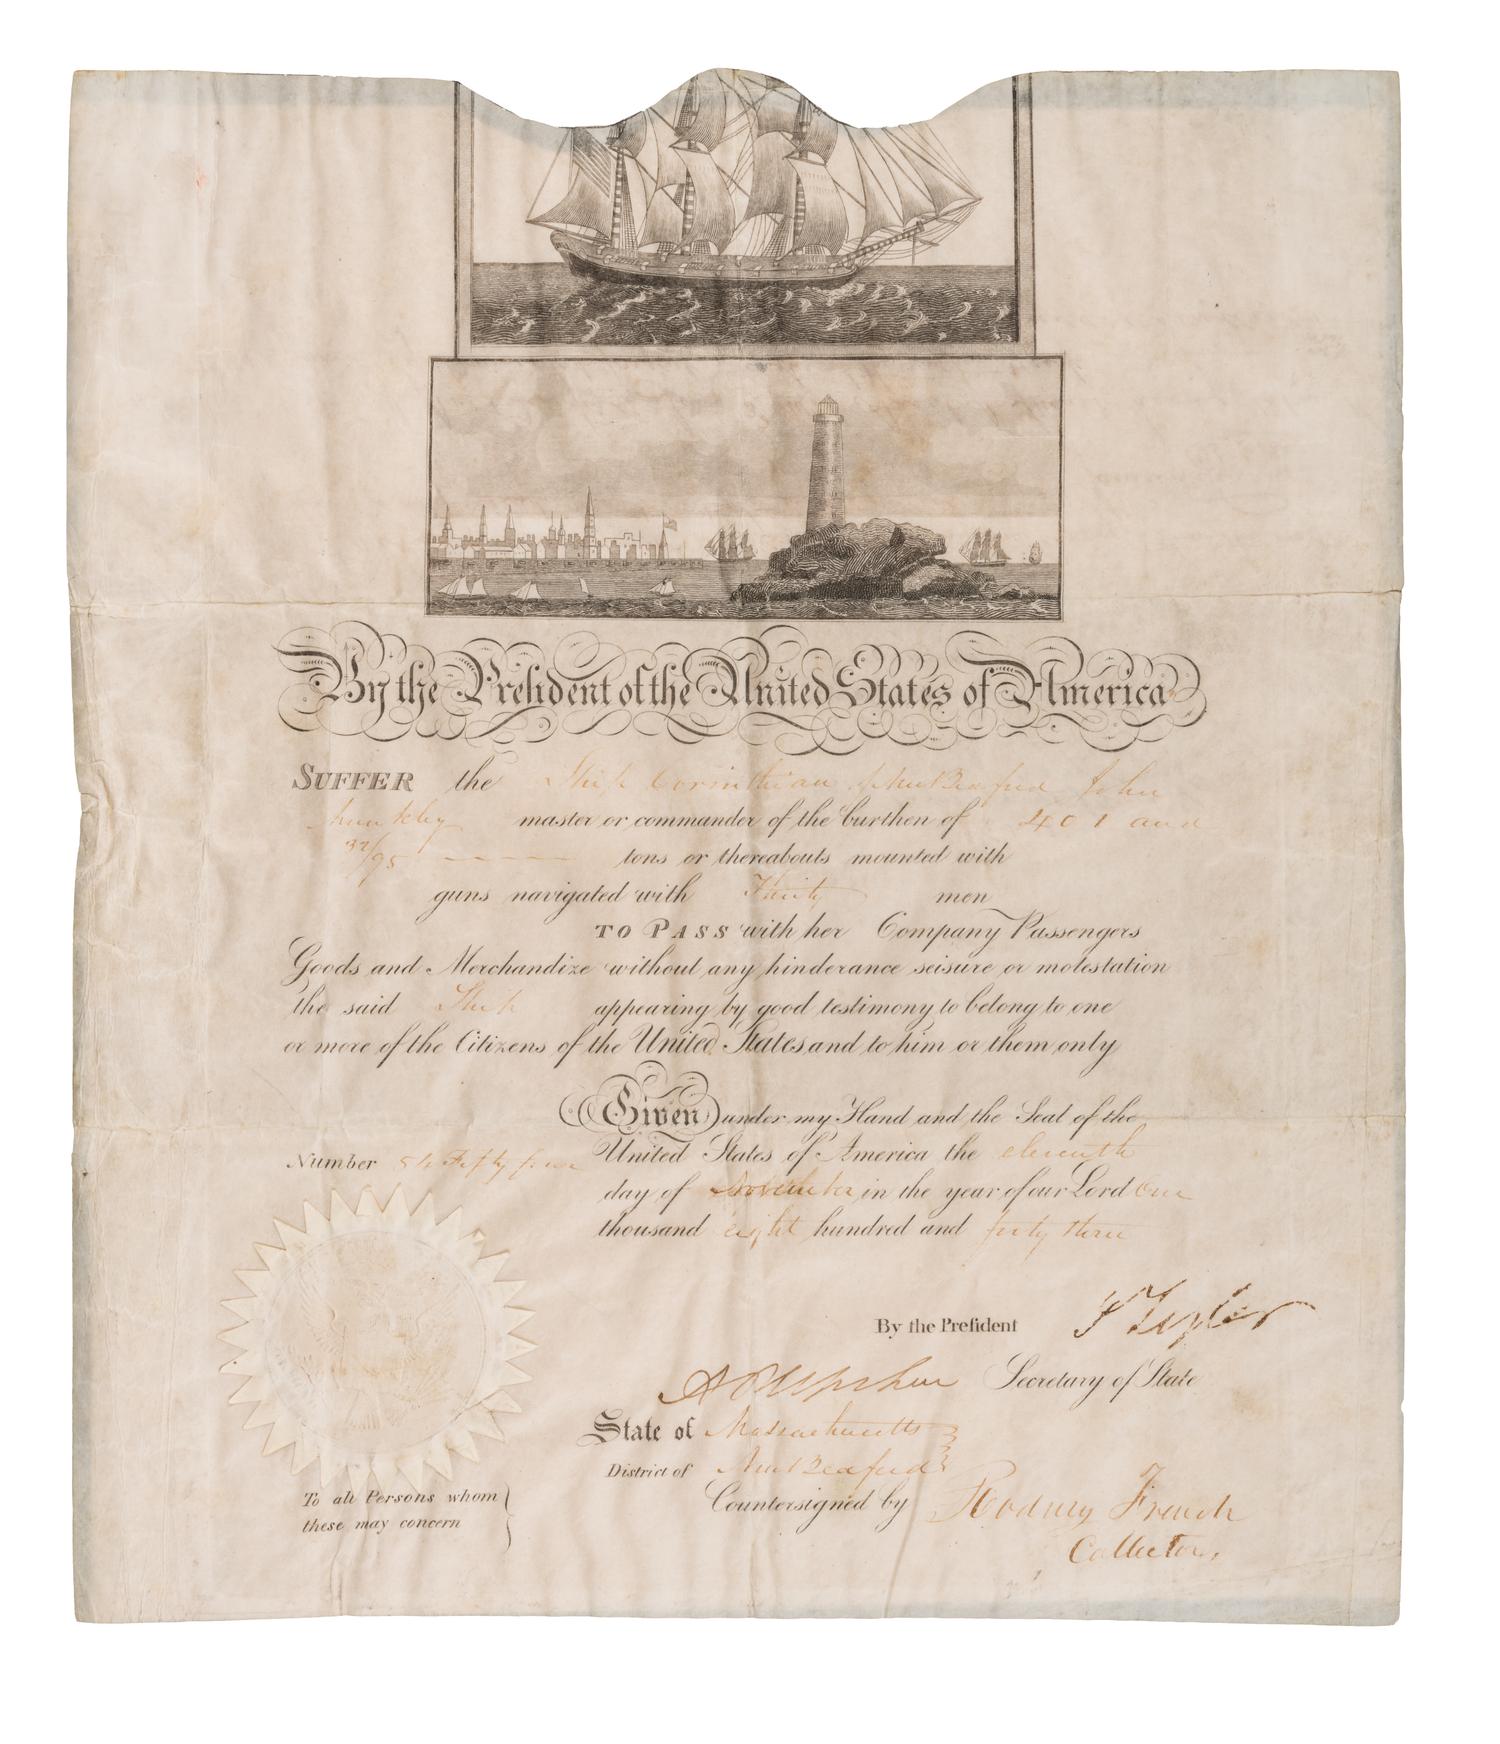 By the President of the United States of America
SUFFER the Ship Corinthian of New Bedford John
master or commander of the burthen of 401 and
32/95 tons or thereabouts mounted with
guns navigated with Thirty men
TO PASS with her Company Passengers
Goods and Merchandize without any hinderance seisure or molestation
the said Ship appearing by good testimony to belong to one
or more of the Citizens of the United States and to him or them only
Given under my Hand and the Seal of the
United States of America the eleventh
day of November in the year of our Lord One
thousand eight hundred and forty three
Number 54 Fifty four
By the President J Tyler
A P Upshur Secretary of State
State of Massachusetts
District of New Bedford
Countersigned by Rodney French
Collector,
To all Persons whom
these may concern